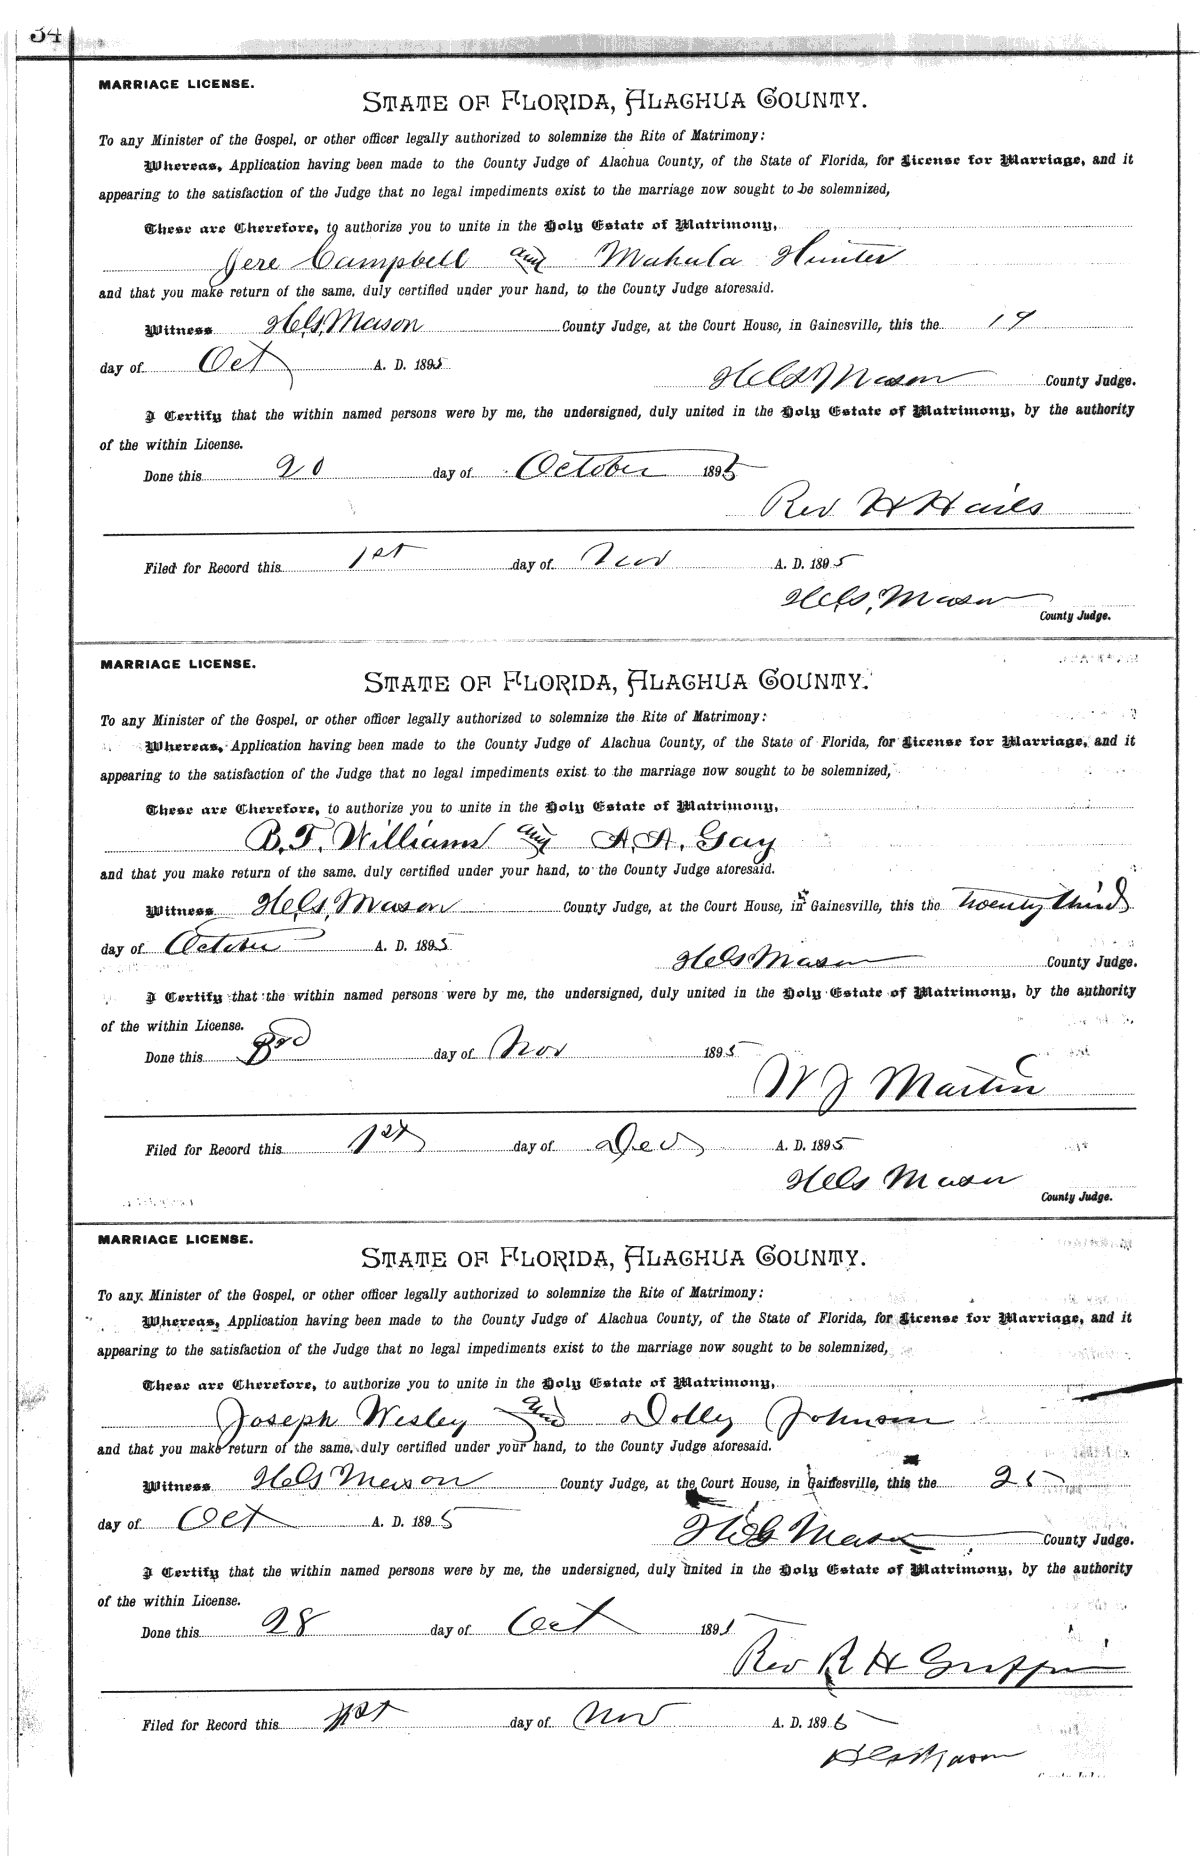 34
MARRIAGE LICENSE.
STATE OF FLORIDA, ALACHUA COUNTY.
To any Minister of the Gospel, or other officer legally authorized to solemnize the Rite of Matrimony:
Whereas, Application having been made to the County Judge of Alachua County, of the State of Florida, for License for Marriage, and it
appearing to the satisfaction of the Judge that no legal impediments exist to the marriage now sought to be solemnized,
These are Therefore, to authorize you to unite in the Holy Estate of Matrimony,
Jere Campbell and Mahula Hunter
and that you make return of the same, duly certified under your hand, to the County Judge aforesaid.
Witness H.G. Mason County Judge, at the Court House, in Gainesville, this the 19
day of Oct A. D. 1895
H G Mason County Judge.
I Certify that the within named persons were by me, the undersigned, duly united in the Holy Estate of Matrimony, by the authority
of the within License.
Done this 20 day of October 1895
Rev H Hailes
Filed for Record this 1st day of Nov A. D. 1895
H.G. Mason
County Judge.
MARRIAGE LICENSE.
STATE OF FLORIDA, ALACHUA COUNTY.
To any Minister of the Gospel, or other officer legally authorized to solemnize the Rite of Matrimony:
Whereas, Application having been made to the County Judge of Alachua County, of the State of Florida, for License for Marriage, and it
appearing to the satisfaction of the Judge that no legal impediments exist to the marriage now sought to be solemnized,
These are Therefore, to authorize you to unite in the Holy Estate of Matrimony,
B. F. Williams and A. A. Gay
and that you make return of the same, duly certified under your hand, to the County Judge aforesaid.
Witness H.G. Mason County Judge, at the Court House, in Gainesville, this the Twenty third
day of October A. D. 1895
H G Mason County Judge.
I Certify that the within named persons were by me, the undersigned, duly united in the Holy Estate of Matrimony, by the authority
of the within License.
Done this 3rd day of Nov 1895
W J Martin
Filed for Record this 1st day of Dec A. D. 1895
H G Mason
County Judge.
MARRIAGE LICENSE.
STATE OF FLORIDA, ALACHUA COUNTY.
To any Minister of the Gospel, or other officer legally authorized to solemnize the Rite of Matrimony:
Whereas, Application having been made to the County Judge of Alachua County, of the State of Florida, for License for Marriage, and it
appearing to the satisfaction of the Judge that no legal impediments exist to the marriage now sought to be solemnized,
These are Therefore, to authorize you to unite in the Holy Estate of Matrimony,
Joseph Wesley and Dolly Johnson
and that you make return of the same, duly certified under your hand, to the County Judge aforesaid.
Witness H G Mason County Judge, at the Court House, in Gainesville, this the 25
day of Oct A. D. 1895
H G Mason County Judge.
I Certify that the within named persons were by me, the undersigned, duly united in the Holy Estate of Matrimony, by the authority
of the within License.
Done this 28 day of Oct 1895
Rev R H Griffin
Filed for Record this 1st day of Nov A. D. 1895
H G Mason